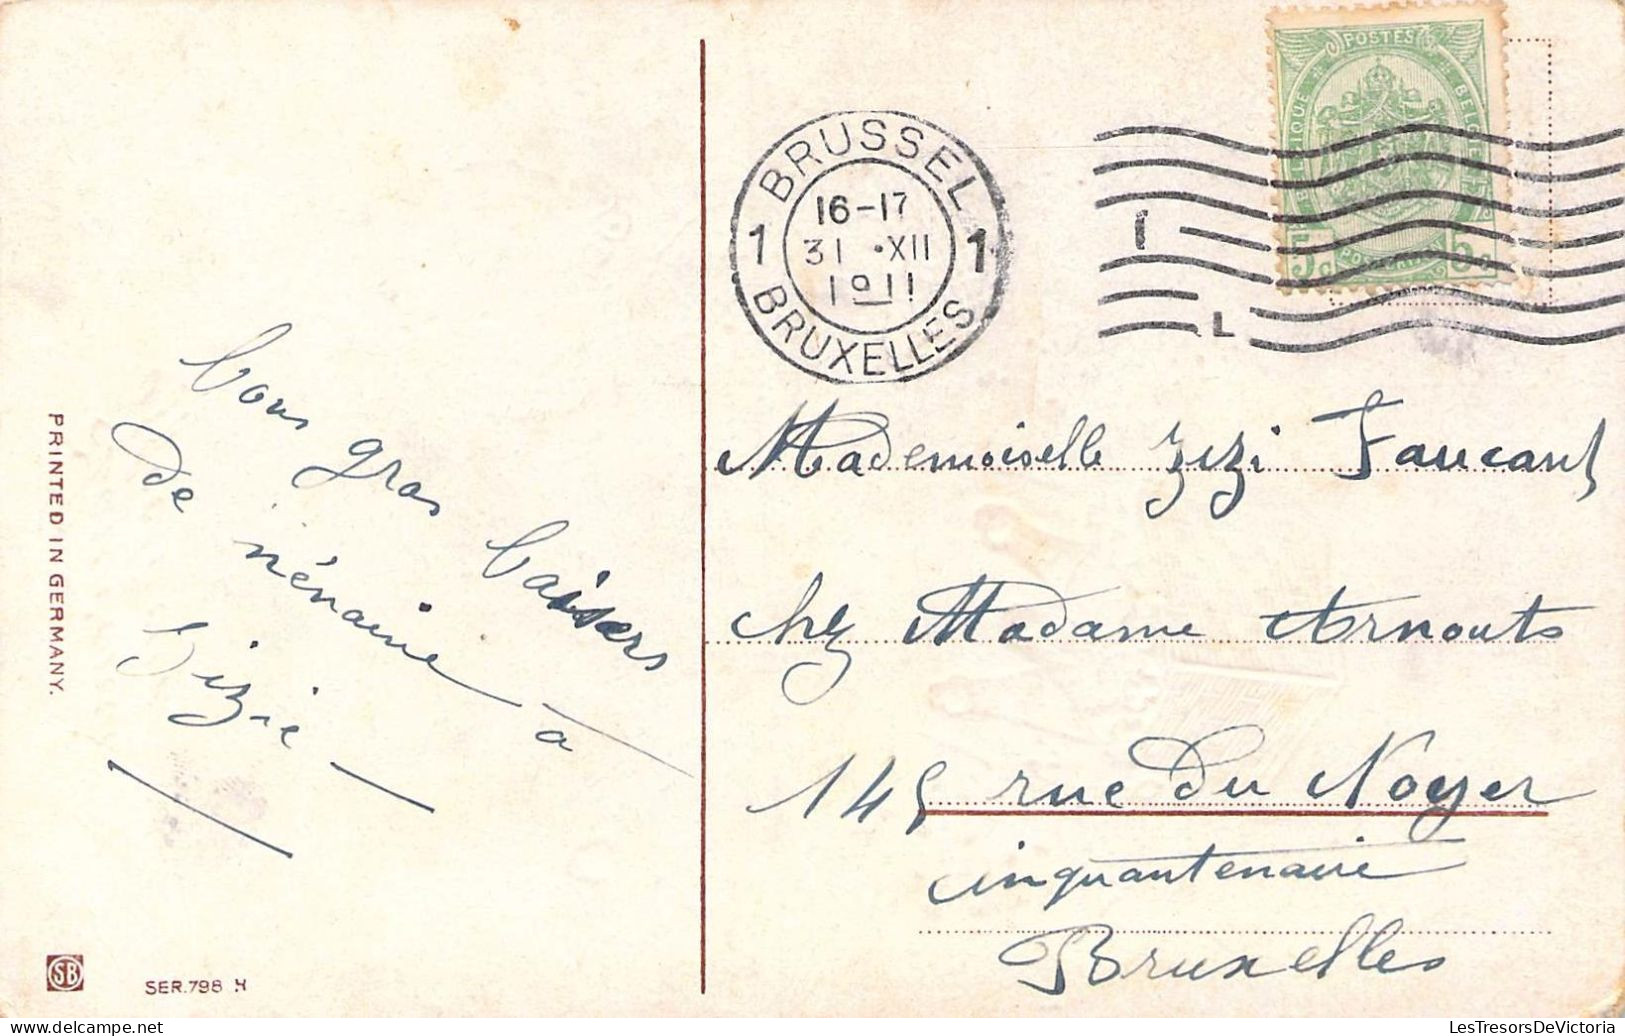 bons gros baisers
de nénaine à
Zizie
PRINTED IN GERMANY.
SB
SER. 798 H
BRUSSEL
1 1
16-17
31 XII
1911
BRUXELLES
POSTES
BELGIQUE
BELGIE
5c 5c
L
Mademoiselle Zizi Faucant
chez Madame Arnouts
145 rue du Noyer
cinquantenaire
Bruxelles
LesTresorsDeVictoria